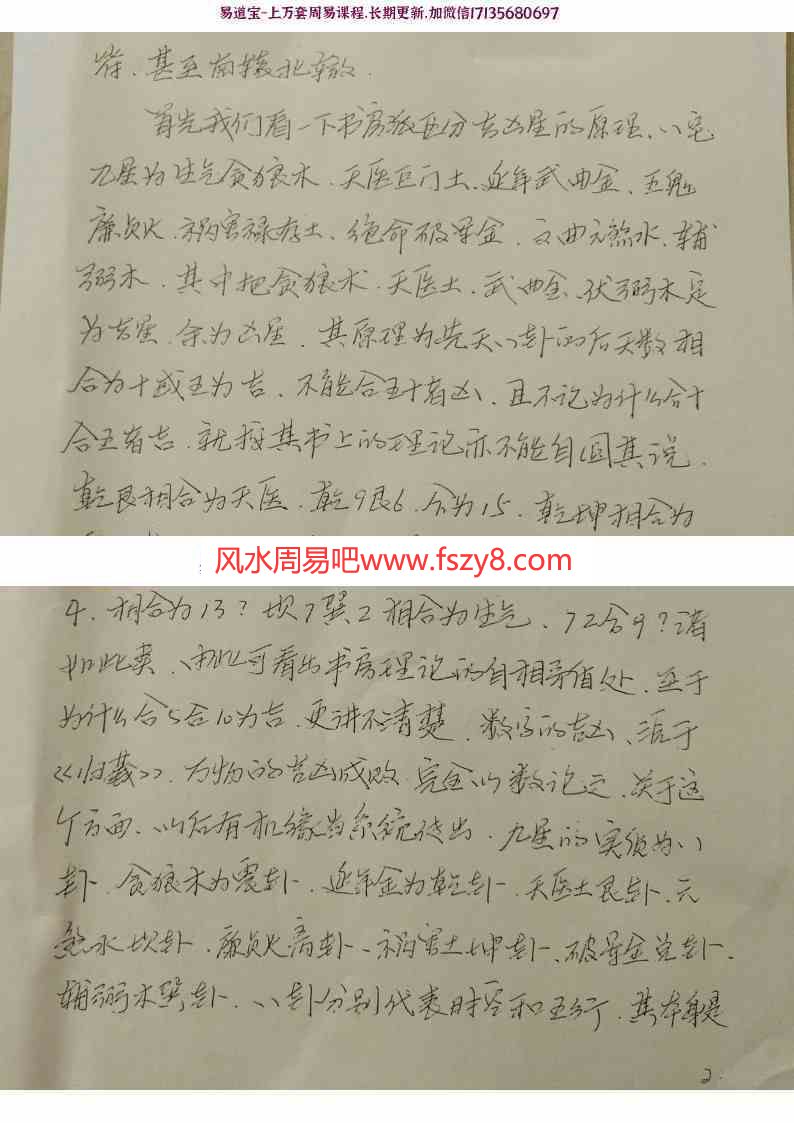 易道宝-上万套周易课程.长期更新.加微信17135680697
符、甚至南辕北辙.
首先我们看一下书房派区分吉凶星的原理、八宅
九星为生气贪狼木、天医巨门土、延年武曲金、五鬼
廉贞火、祸害禄存土、绝命破军金、文曲六煞水、辅
弼木、其中把贪狼木、天医土、武曲金、伏弼木定
为吉星、余为凶星、其原理为先天八卦的后天数相
合为十或五为吉、不能合五十者凶、且不论为什么合十
合五者吉、就按其书上的理论亦不能自圆其说、
乾艮相合为天医、乾9艮6、合为15、乾坤相合为
风水周易吧www.fszy8.com
4、相合为13？坎7巽2相合为生气、72合9？诸
如此类、由此可看出书房理论的自相矛盾处、至于
为什么合5合10为吉、更讲不清楚、数字的吉凶、源于
《归藏》、万物的吉凶成败、完全以数论定、关于这
个方面、以后有机缘当系统徒出、九星的实质为八
卦、贪狼木为震卦、延年金为乾卦、天医土艮卦、六
煞水坎卦、廉贞火离卦、祸害土坤卦、破军金兑卦、
辅弼木巽卦、八卦分别代表时空和五行、其本身是
2.